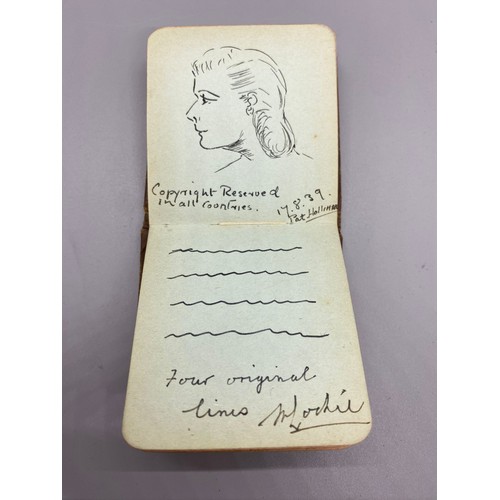 Copyright Reserved
in all countries.
17.8.39.
Pat
Four original
lines